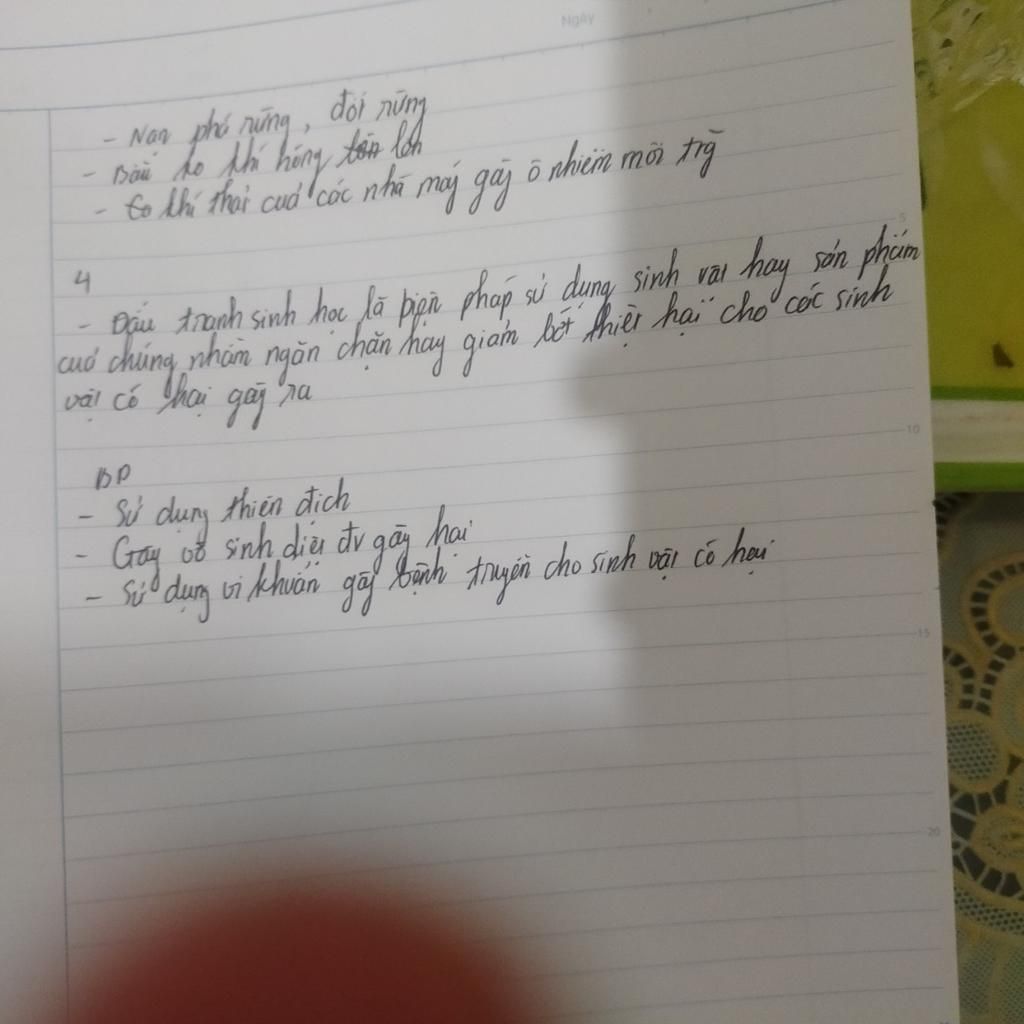 Ngày
- Nạn phá rừng, đốt rừng
- Bầu ko khí hỏng lớn
- Co khí thải cuả các nhà máy gây ô nhiễm môi trg
5
4
- Đấu tranh sinh học là biện pháp sử dụng sinh vật hay sản phẩm
cuả chúng nhằm ngăn chặn hay giảm bớt thiệt hại cho các sinh
vật có hại gây ra
10
BP
- Sử dụng thiên địch
- Gây vô sinh diệt đv gây hại
- Sử dụng vi khuẩn gây bệnh truyền cho sinh vật có hại
15
20